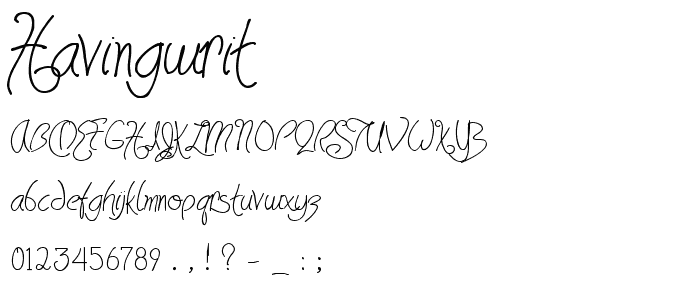 Havingwrit
ABCDEFGHIJKLMNOPQRSTUVWXYZ
abcdefghijklmnopqrstuvwxyz
0123456789 . , ! ? - _ : ;